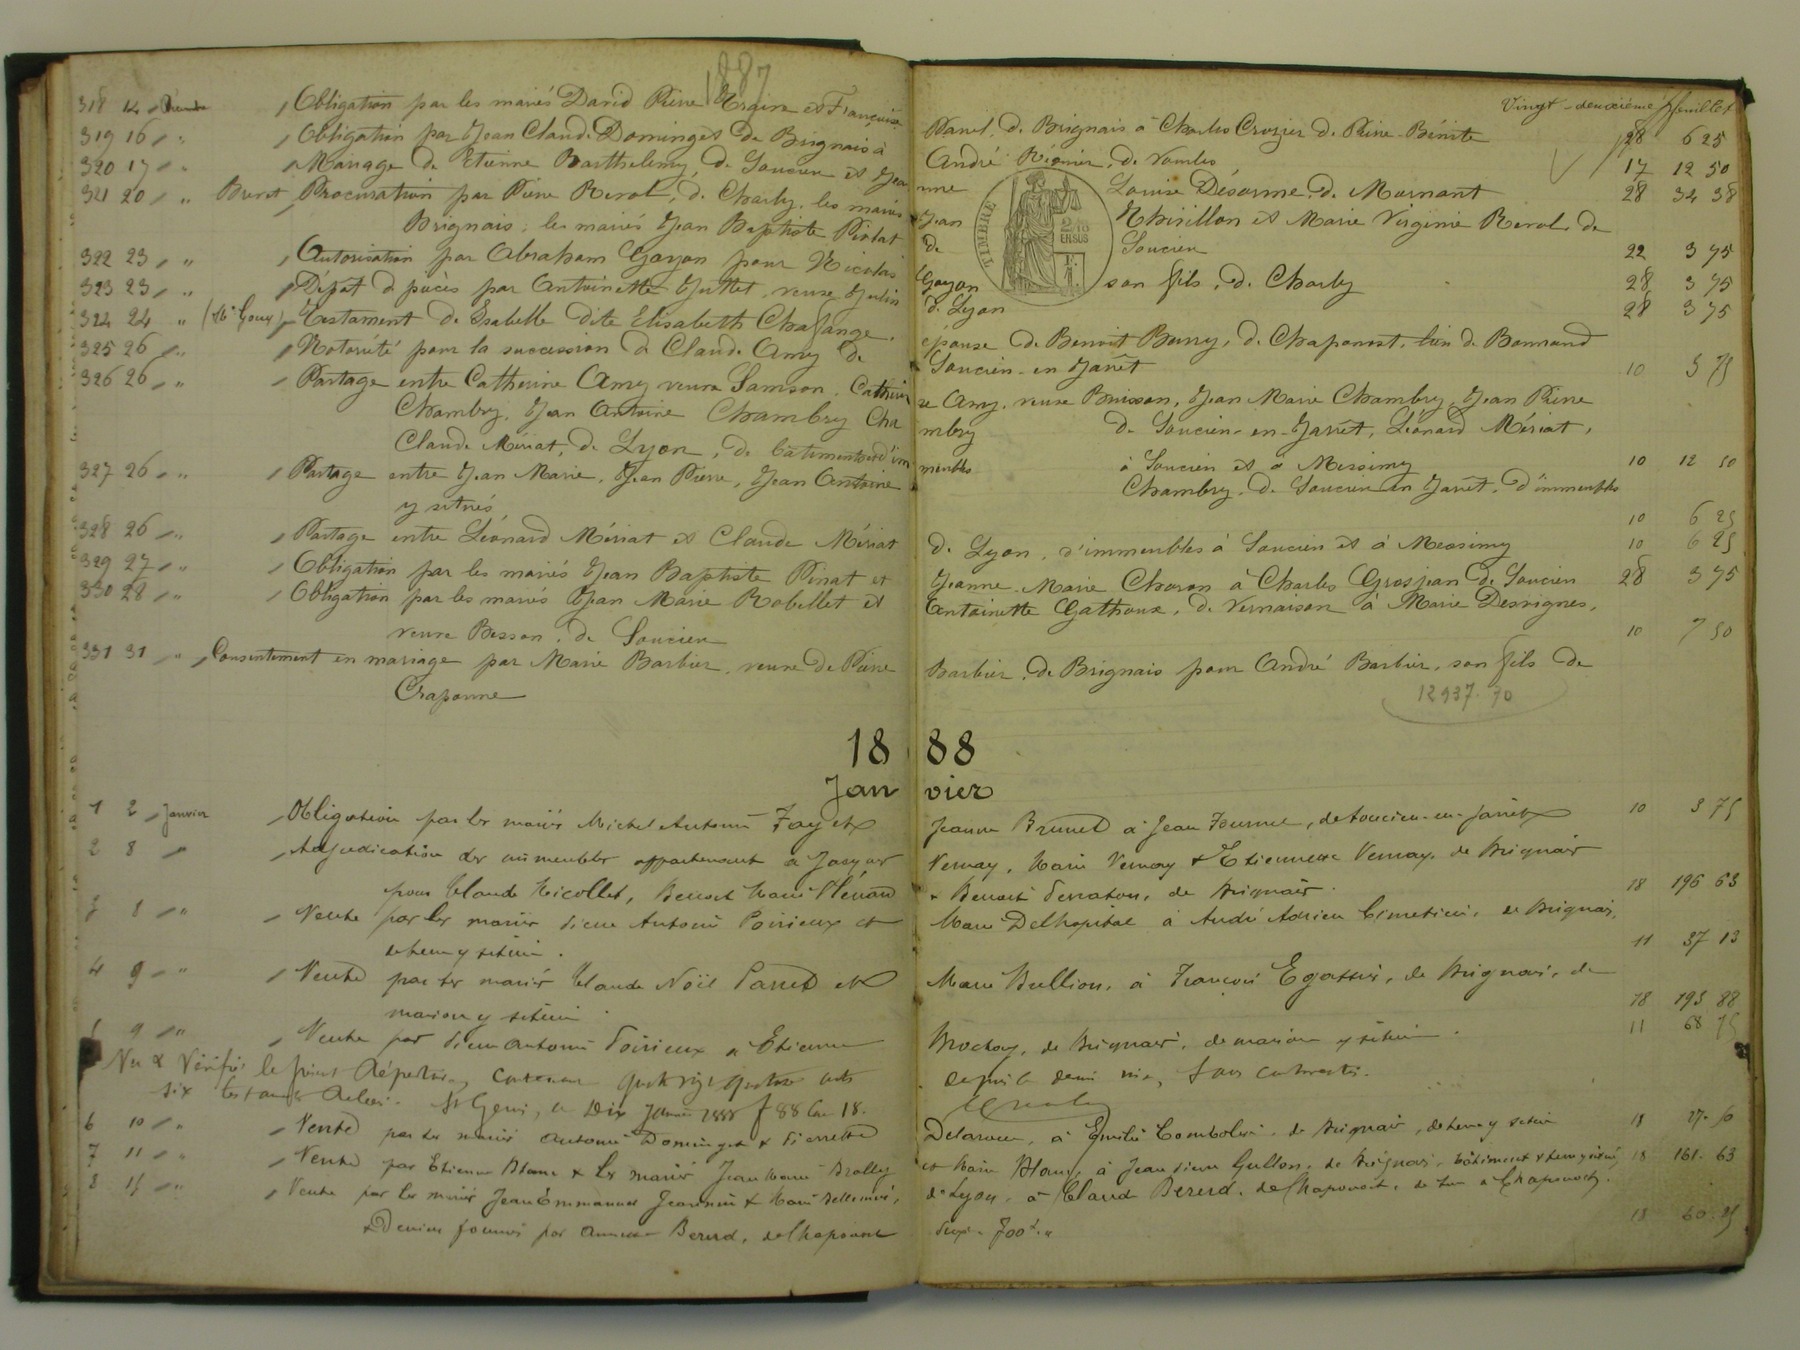 1887
Vingt-deuxième feuillet
318 14 " Décembre Obligation par les mariés David Pierre et Françoise Panel, de Brignais à Charles Crozier de Pierre-Bénite 28 6 25
319 16 " " Obligation par Jean Claude Dominget de Brignais à André Régnier, de Vourles 17 12 50
320 17 " " Mariage de Etienne Barthelemy, de Soucieu et Jeanne Louise Désorme, de Mornant 28 34 38
321 20 " " Brevet Procuration par Pierre Revol, de Charly, les mariés Jean Thivillon et Marie Virginie Revol, de
Brignais, les mariés Jean Baptiste Pinat de Soucieu 22 3 75
TIMBRE
ENSUS
322 23 " " Autorisation par Abraham Goyon pour Nicolas Goyon son fils, de Charly 28 3 75
323 23 " " Dépôt de pièces par Antoinette Juttet, veuve Julin de Lyon 28 3 75
324 24 " (Me Goux) Testament de Isabelle dite Elisabeth Chalange, épouse de Benoit Barry, de Chaponost, lieu de Bonnand
325 26 " " Notoriété pour la succession de Claude Amy de Soucieu-en-Jarret 10 3 75
326 26 " " Partage entre Catherine Amy veuve Samson, Catherine Amy, veuve Buisson, Jean Marie Chambry, Jean Pierre
Chambry, Jean Antoine Chambry Chambry de Soucieu-en-Jarret, Léonard Mériat,
Claude Mériat, de Lyon, de bâtiments et d'immeubles à Soucieu et à Messimy 10 12 50
327 26 " " Partage entre Jean Marie, Jean Pierre, Jean Antoine Chambry, de Soucieu en Jarret, d'immeubles
y situés 10 6 25
328 26 " " Partage entre Léonard Mériat et Claude Mériat de Lyon, d'immeubles à Soucieu et à Messimy 10 6 25
329 27 " " Obligation par les mariés Jean Baptiste Pinat et Jeanne Marie Charon à Charles Grosjean de Soucieu 28 3 75
330 28 " " Obligation par les mariés Jean Marie Robellet et Antoinette Gathoux, de Vernaison à Marie Desvignes,
veuve Besson, de Soucieu 10 7 50
331 31 " " Consentement en mariage par Marie Barbier, veuve de Pierre Barbier, de Brignais pour André Barbier, son fils de
Craponne
12937.70
1888
Janvier
1 2 " Janvier Obligation par les mariés Michel Antoine Fay et Jeanne Brunel à Jean Fournel, de Soucieu-en-Jarret 10 3 75
2 8 " Adjudication des immeubles appartenant à Jacques Vernay, Marie Vernay & Etiennette Vernay, de Brignais
pour Claude Nicollet, Benoit Marie & Benoit Serraton, de Brignais. 18 196 63
3 8 " " Vente par les mariés Pierre Antoine Poirieux et Marie Delhopital à André Adrien Cimetière, de Brignais,
de terre y située. 11 37 13
4 9 " " Vente par les mariés Claude Noël Panel et Marie Bullion, à François Egassier, de Brignais, de
maison y située. 18 195 88
5 9 " " Vente par Pierre Antoine Poirieux à Etienne Brochay, de Brignais, de maison y située. 11 68 75
Vu & Vérifié le présent Répertoire, contenant actes
depuis le dernier visa, sans contravention.
six testaments St Genis, le Dix Janvier 1888 f 88 C 18.
6 10 " " Vente par les mariés Antoine Dominget & Pierrette Delarue, à Emilie, de Brignais, de terre y située 18 27 50
7 11 " " Vente par Etienne Blanc & les mariés Jean Marie Brally et Marie Blanc, à Jean Pierre Gullon, de Brignais, bâtiment & terre y situés 18 161.63
8 15 " " Vente par les mariés Jean Emmanuel Jeannin & Marie, de Lyon, à Claude Bererd, de Chaponost, de terre à Chaponost.
& Deniers fournis par Bererd, de Chaponost 700f. 18 60.25